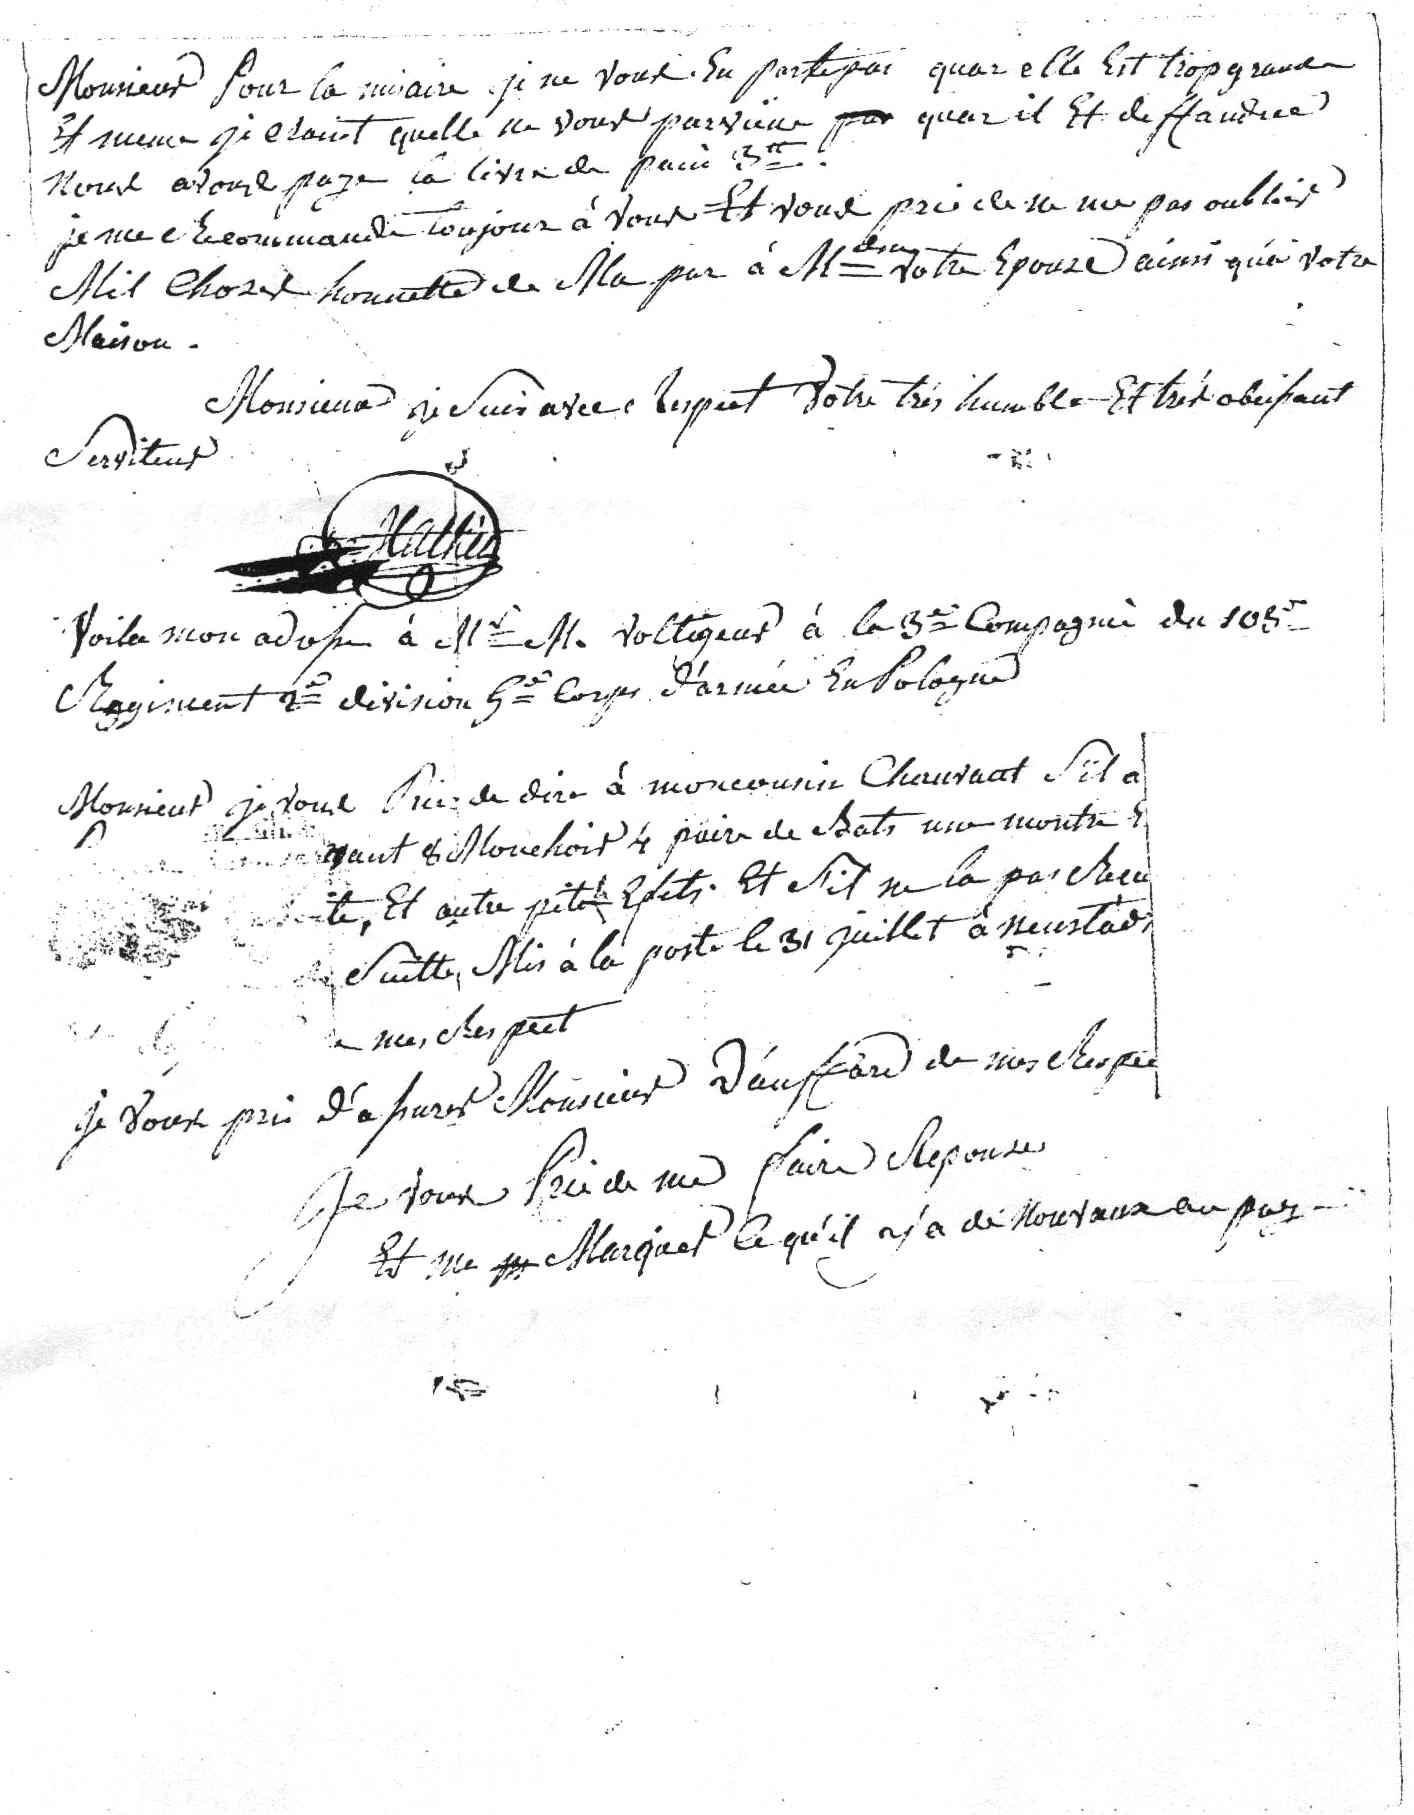 Monsieur Pour la misaire je ne vous En parle pas quar elle Est trop grande
Et meme je craint quelle ne vous parviene quar il Et deffandue
Nous avons paye la livre de pain 3tt.
je me Recommande toujour à vous Et vous prie de ne me pas oublier
Mil Choses honnette de Ma par à Mdme votre Epouse ainsi qu'à votre
Maison.
Monsieur je Suis avec Respect Votre trés humble Et trés obeissant
Serviteur
Mathie
Voila mon adresse à Mr M. voltigeur à la 3e Compagnie du 103e
Regiment 2e division 5e Corps d'armée En Pologne
Monsieur je vous Prie de dire à mon cousin Chauvaut S'il a
vant 8 Mouchoir 4 paire de Bats une montre
te, Et autre petit Efets. Et S'il ne la pas Recu
Suitte, Mis à la poste le 31 juillet à Neustad
mes Respect
je vous prie d'assurer Monsieur Dauffard de mes Respec
Je vous Prie de me faire Reponse
Et me Marquer ce qu'il y a de Nouvaux au pays